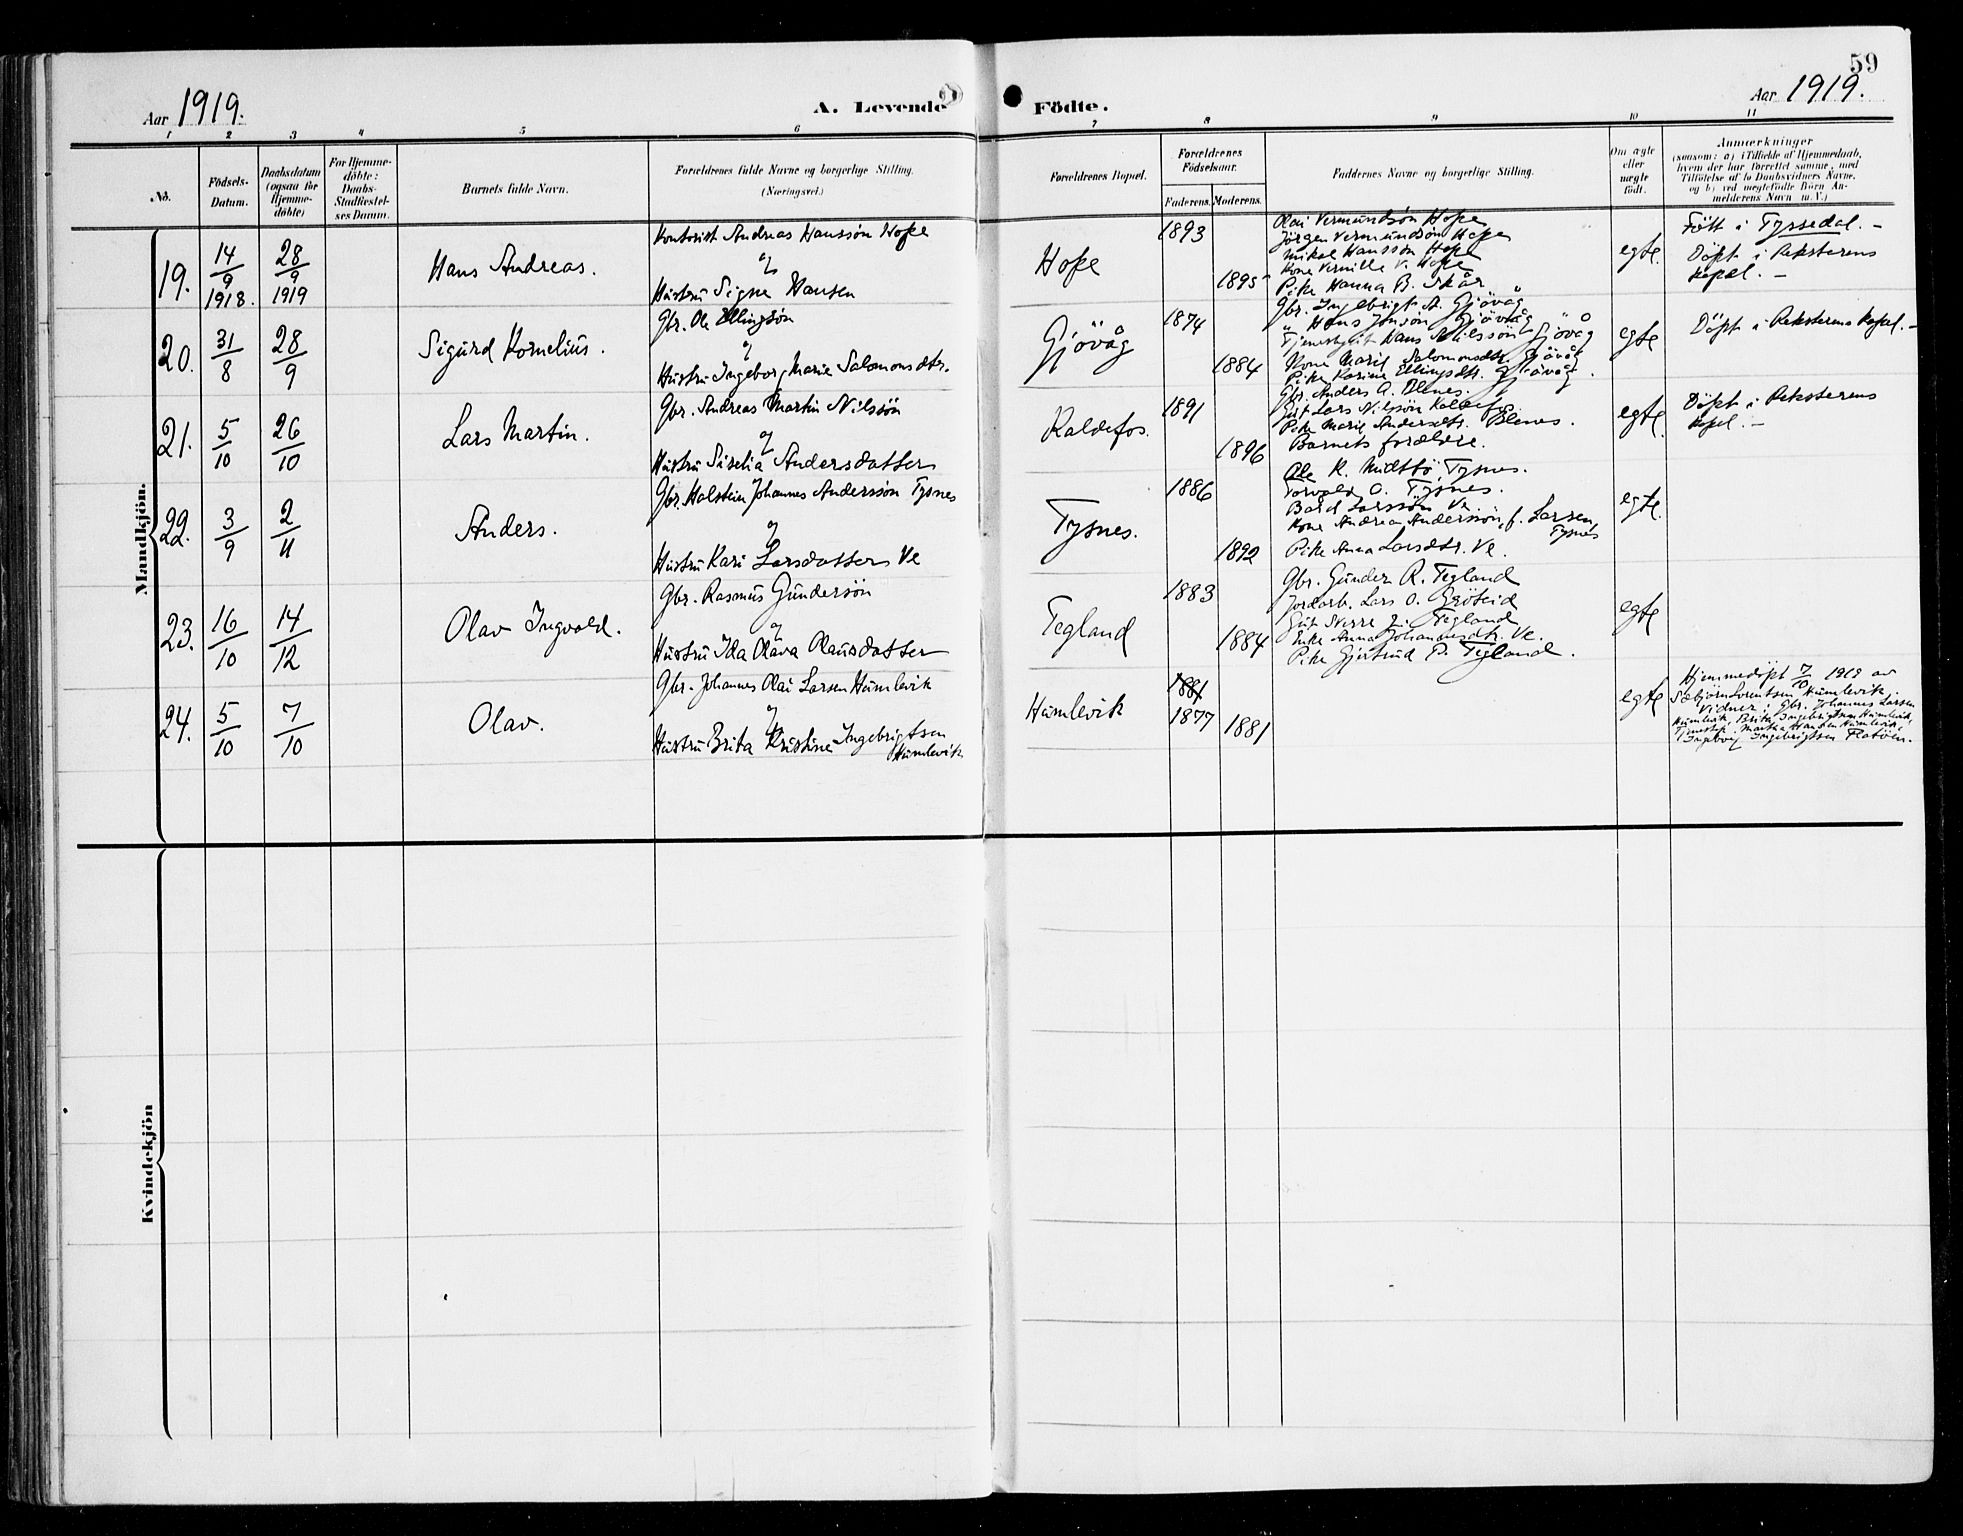 59
Aar 1919.
A. Levende Födte.
Aar 1919.
1 2 3 4 5 6 7 8 9 10 11
No.
Födsels-
Datum.
Daabsdatum
(ogsaa for
Hjemme-
döbte)
For Hjemme-
döbte:
Daabs-
Stadfæstel-
ses Datum.
Barnets fulde Navn.
Forældrenes fulde Navne og borgerlige Stilling.
(Næringsvei.)
Forældrenes Bopæl.
Forældrenes
Födselsaar.
Faderens. Moderens.
Faddernes Navne og borgerlige Stilling.
Om ægte
eller
uægte
födt.
Anmærkninger
(saasom: a) i Tilfælde af Hjemmedaab,
hvem der har forrettet samme, med
Tilföielse af to Daabsvidners Navne,
og b) ved uægtefödte Börn An-
melderens Navn m. V.)
Mandkjön.
19.
14/9 1918.
28/9 1919
Hans Andreas.
Kontorist Andreas Hanssön Hope
og
Hustru Signe Hansen
Hope
1893
1895
Olai Vermundsön Hope
Jörgen Vermundsön Hope
Mikal Hanssön Hope
Kone Vernille V. Hope
Pike Hanna B. Skår
egte.
Fött i Tyssedal. -
Döpt i Reksterens
kapel. -
20.
31/8
28/9
Sigurd Kornelius.
Gbr. Ole Ellingsön
og
Hustru Ingeborg Marie Salomonsdtr.
Gjövåg
1874
1884
Gbr. Ingebrigt A. Gjövåg
" Hans Jonsön Gjövåg
Tjenestgut Hans Nilssön Gjövåg
Kone Marie Salomonsdtr. Gjövåg
Pike Karine Ellingsdtr. Gjövåg.
egte
Döpt i Reksterens kapel. -
21.
5/10
26/10
Lars Martin.
Gbr. Andreas Martin Nilssön
og
Hustru Siselia Andersdatter
Kaldefos.
1891
1896
Gbr. Anders A. Flenes.
Gut Lars Nilssön Kaldefos
Pike Marie Andersdtr. Flenes.
Barnets forældre.
egte.
Döpt i Reksterens
kapel. -
22.
3/9
2/11
Anders.
Gbr. Halstein Johannes Anderssön Tysnes
og
Hustru Kari Larsdatter Ve
Tysnes.
1886
1892
Ole K. Midttö, Tysnes.
Torvald O. Tysnes.
Bård Larssön Ve
Kone Andrea Anderssön, f. Larsen,
Tysnes
Pike Anna Larsdtr. Ve.
egte.
23.
16/10
14/12
Olav Ingvald.
Gbr. Rasmus Gundersön
og
Hustru Ida Olava Olausdatter
Tegland
1883
1884
Gbr. Gunder R. Tegland
Jordarb. Lars O. Gröteid
Gut Sverre G. Tegland
Enke Anna Johannesdtr. Ve.
Pike Gjertrud P. Tegland.
egte
24.
5/10
7/10
Olav.
Gbr. Johannes Olai Larsen Humlevik
og
Hustru Brita Kristine Ingebrigtsen
Humlevik
Humlevik
1881
1877
1881
egte
Hjemmedöpt 7/10 1919 av
Sæbjörn Lorentsen Humlevik.
Vidner: Gbr. Johannes Larsen
Humlevik, Brita Ingebrigtsen Humlevik,
Martha Hansen Humlevik,
Ingeborg Ingebrigtsen Flatöen.
Kvindekjön